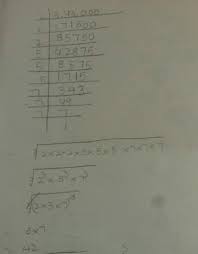 3,43,000
2 171500
85750
5 42875
5 8575
5 1715
7 343
7 49
7 7
√2×2×2×5×5×5×7×7×7
√2³×5³×7³
√(2×3×7)³
6×7
42